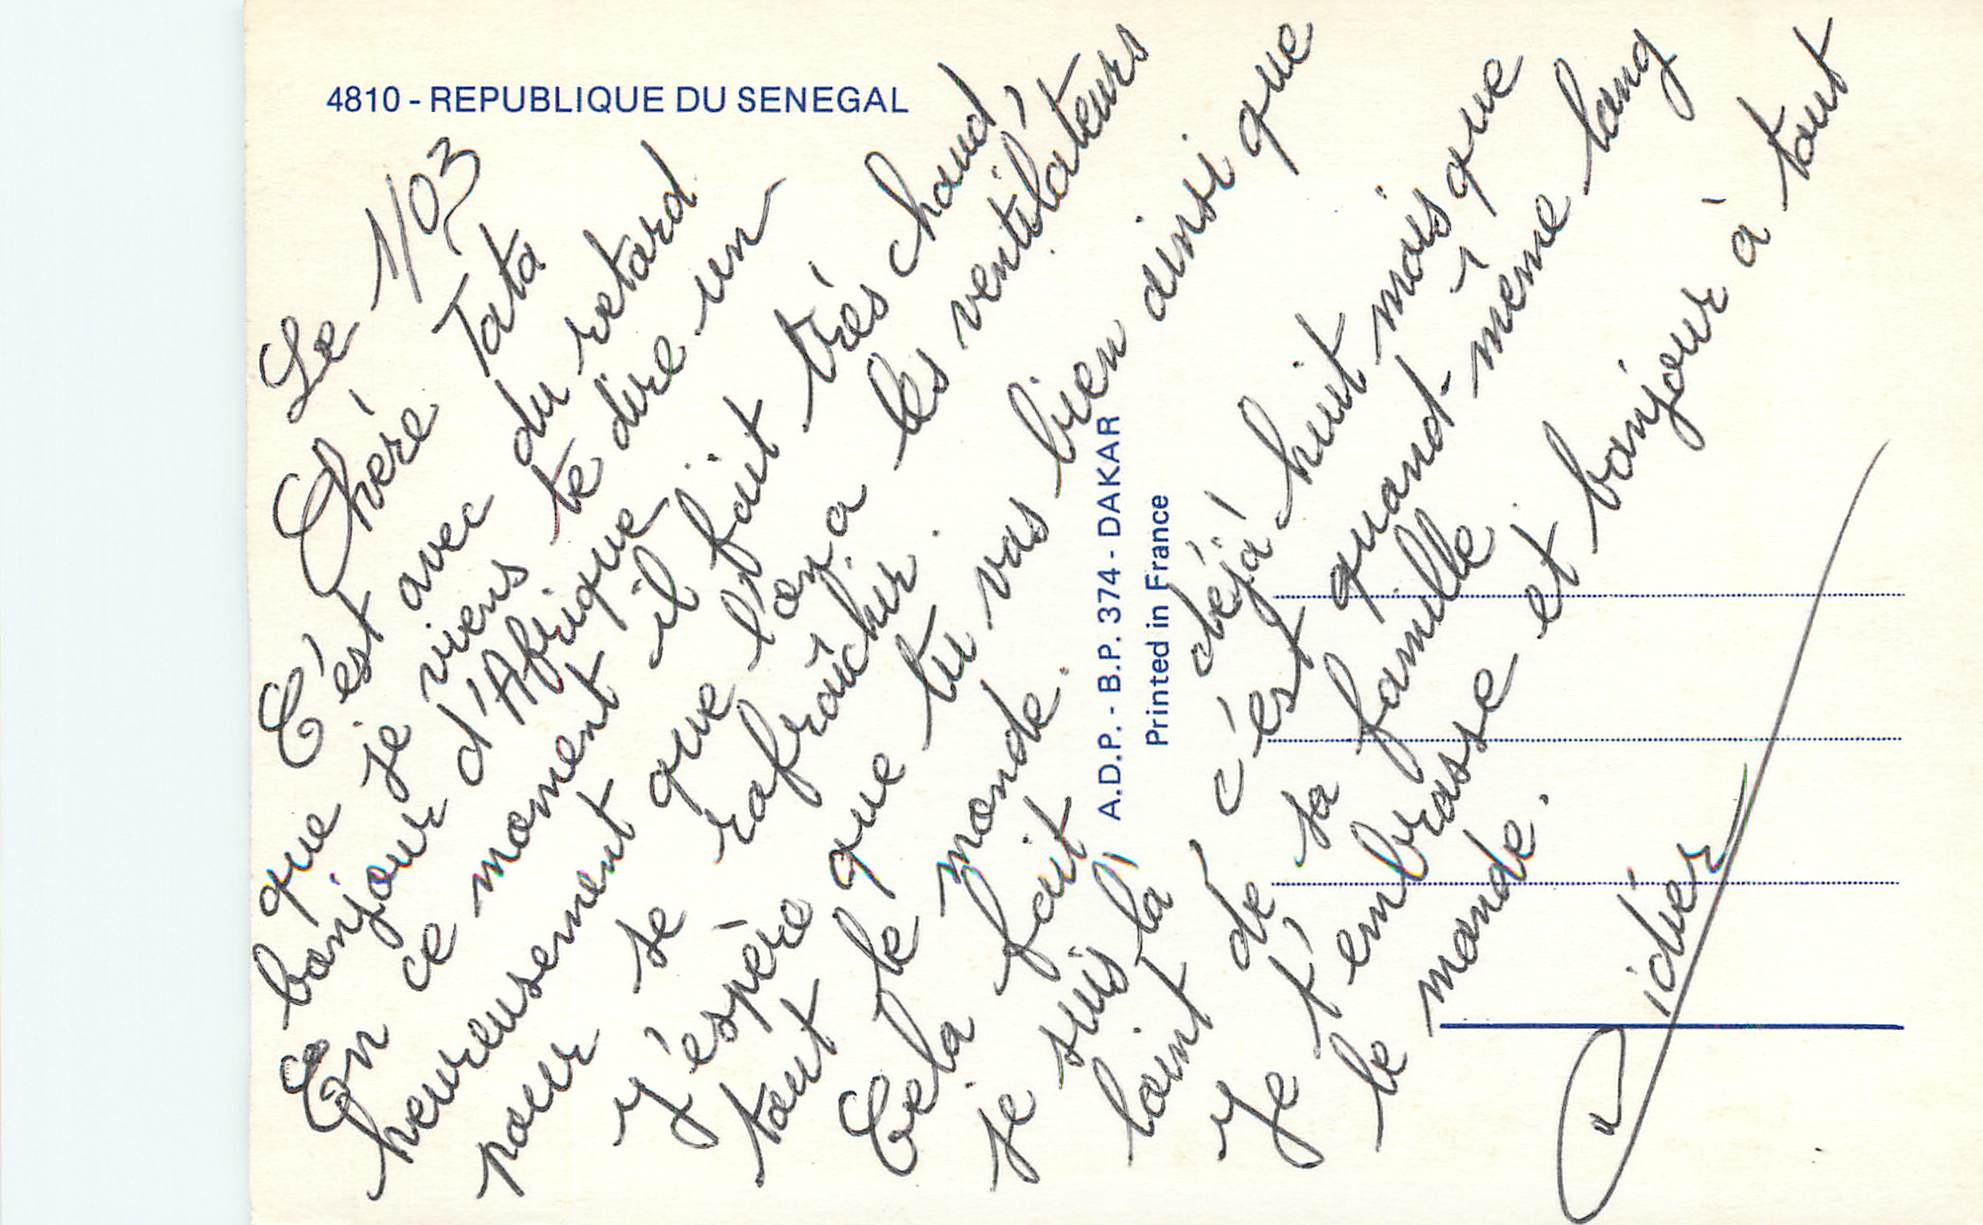 4810 - REPUBLIQUE DU SENEGAL
Le 1/03
Chère Tata
C'est avec du retard
que je viens te dire un
bonjour d'Afrique
En ce moment il fait très chaud,
heureusement que l'on a les ventilateurs
pour se rafraîchir.
J'espère que tu vas bien ainsi que
tout le monde.
Cela fait déjà huit mois que
je suis là c'est quand-même long
loint de sa famille
Je t'embrasse et bonjour à tout
le monde.
Didier
A.D.P. - B.P. 374 - DAKAR
Printed in France